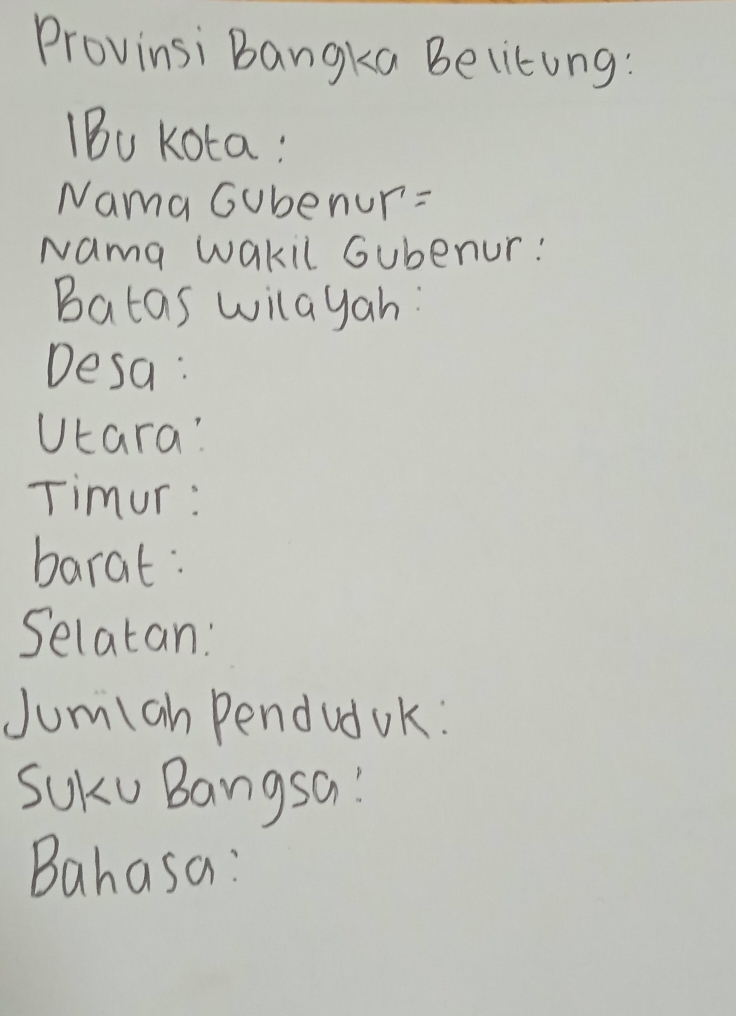 Provinsi Bangka Belitung:
IBu kota:
Nama Gubenur=
Nama wakil Gubenur:
Batas wilayah:
Desa:
Utara:
Timur:
barat:
Selatan:
Jumlah Penduduk:
Suku Bangsa:
Bahasa: